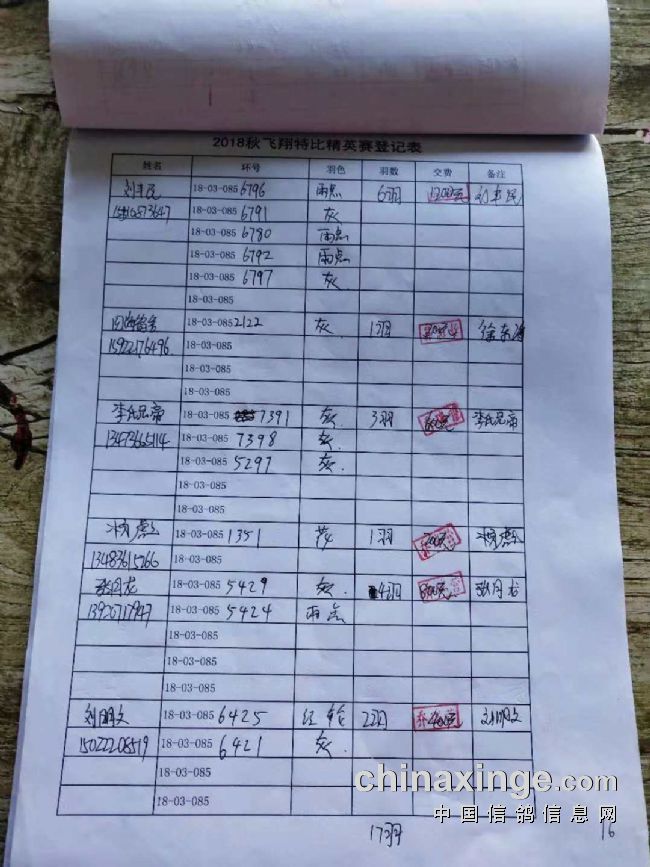 2018秋飞翔特比精英赛登记表
姓名 环号 羽色 羽数 交费 备注
18-03-085 6796 雨点 6羽 1200元
18-03-085 6791 灰
18-03-085 6780 雨点
18-03-085 6792 雨点
18-03-085 6797 灰
18-03-085
18-03-085 2122 灰 1羽
15922176496 18-03-085
18-03-085
18-03-085
李氏兄弟 18-03-085 7391 灰 3羽 李氏兄弟
13473665114 18-03-085 7398 灰.
18-03-085 5297 灰.
18-03-085
18-03-085
18-03-085 1351 1羽 200元
13483615266 18-03-085
张月龙 18-03-085 5429 灰. 4羽 800元 张月龙
13920717947 18-03-085 5424 雨点
18-03-085
18-03-085
18-03-085
刘明文 18-03-085 6425 红轮 2羽 400元 刘明文
15022208519 18-03-085 6421 灰.
18-03-085
18-03-085
17羽 16
chinaxinge.com
中国信鸽信息网